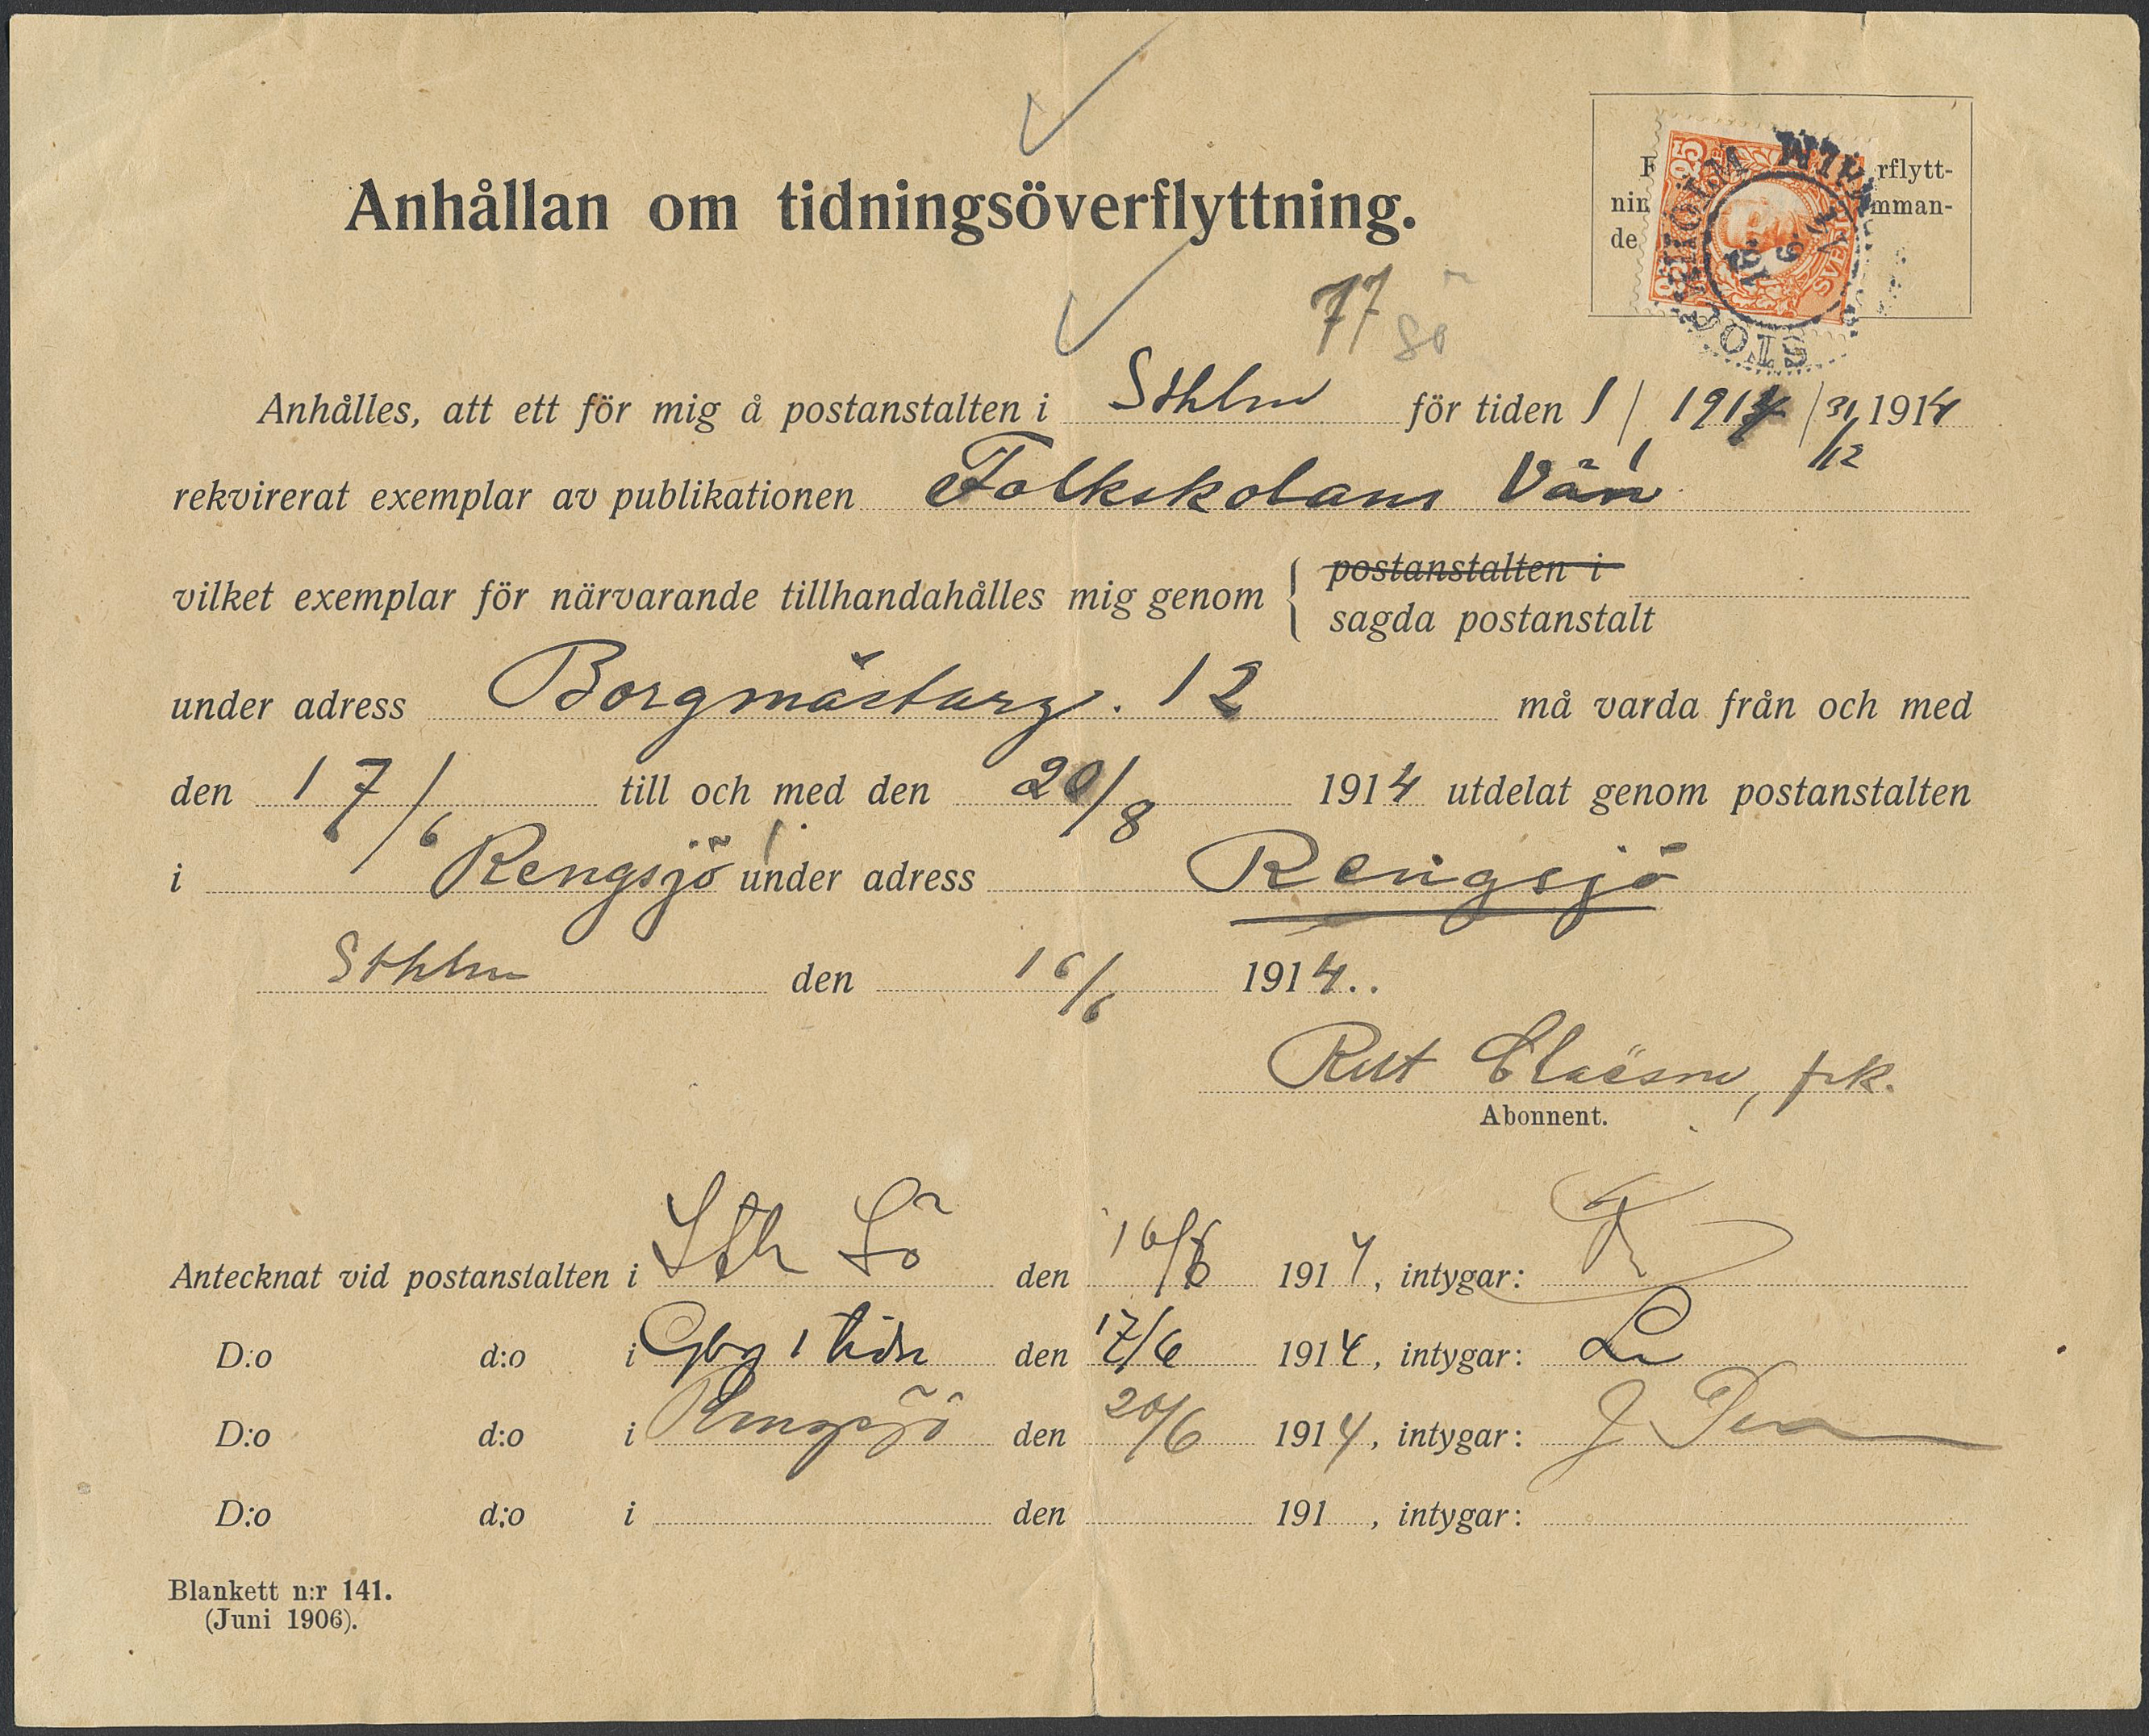 Anhållan om tidningsöverflyttning.
rflytt-
nin mman-
de
25
SVERIGE
STOCKHOLM
77 Sö
Anhålles, att ett för mig å postanstalten i Sthlm för tiden 1/1 1914 / 31/12 1914
rekvirerat exemplar av publikationen Folkskolans Vän
vilket exemplar för närvarande tillhandahålles mig genom { postanstalten i
sagda postanstalt
under adress Borgmästarg. 12 må varda från och med
den 17/6 till och med den 20/8 1914 utdelat genom postanstalten
i Rengsjö under adress Rengsjö
Sthlm den 16/6 1914..
Rut Claëson, frk.
Abonnent.
Antecknat vid postanstalten i Sth Sö den 16/6 1914, intygar:
D:o d:o i Gbg 1 tidn den 17/6 1914, intygar:
D:o d:o i Rengsjö den 20/6 1914, intygar:
D:o d:o i den 191 , intygar:
Blankett n:r 141.
(Juni 1906).